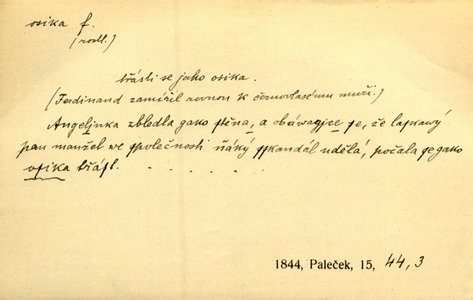 osika f.
(rostl.)
třásti se jako osika.
(Ferdinand zamířil rovnou k černovlasému muži.)
Angelinka zbledla gako stěna, a obáwagjce se, že lapkawý
pan manžel we společnosti ňáký skandál udělá, počala se gako
osika třást. . . . . . .
1844, Paleček, 15, 44, 3